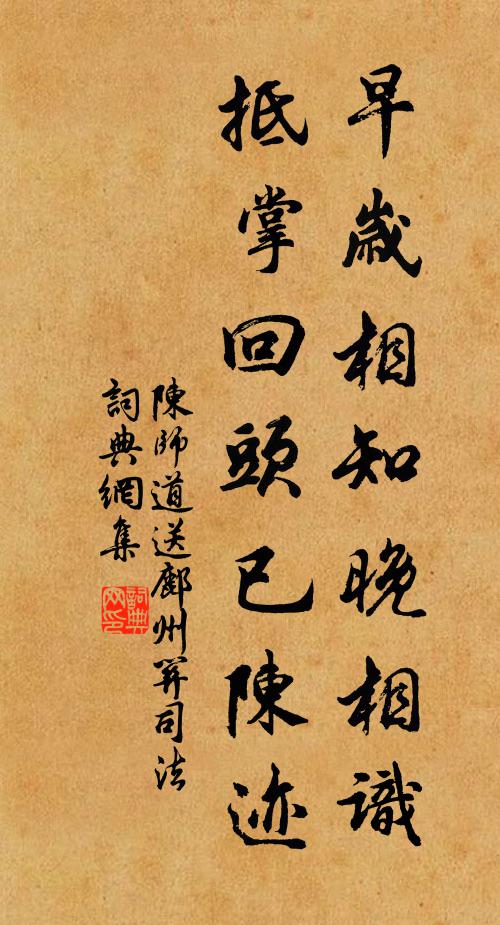 早歲相知晚相識
抵掌回頭已陳迹
陳師道送鄜州羿司法
詞典網集
詞典
网印